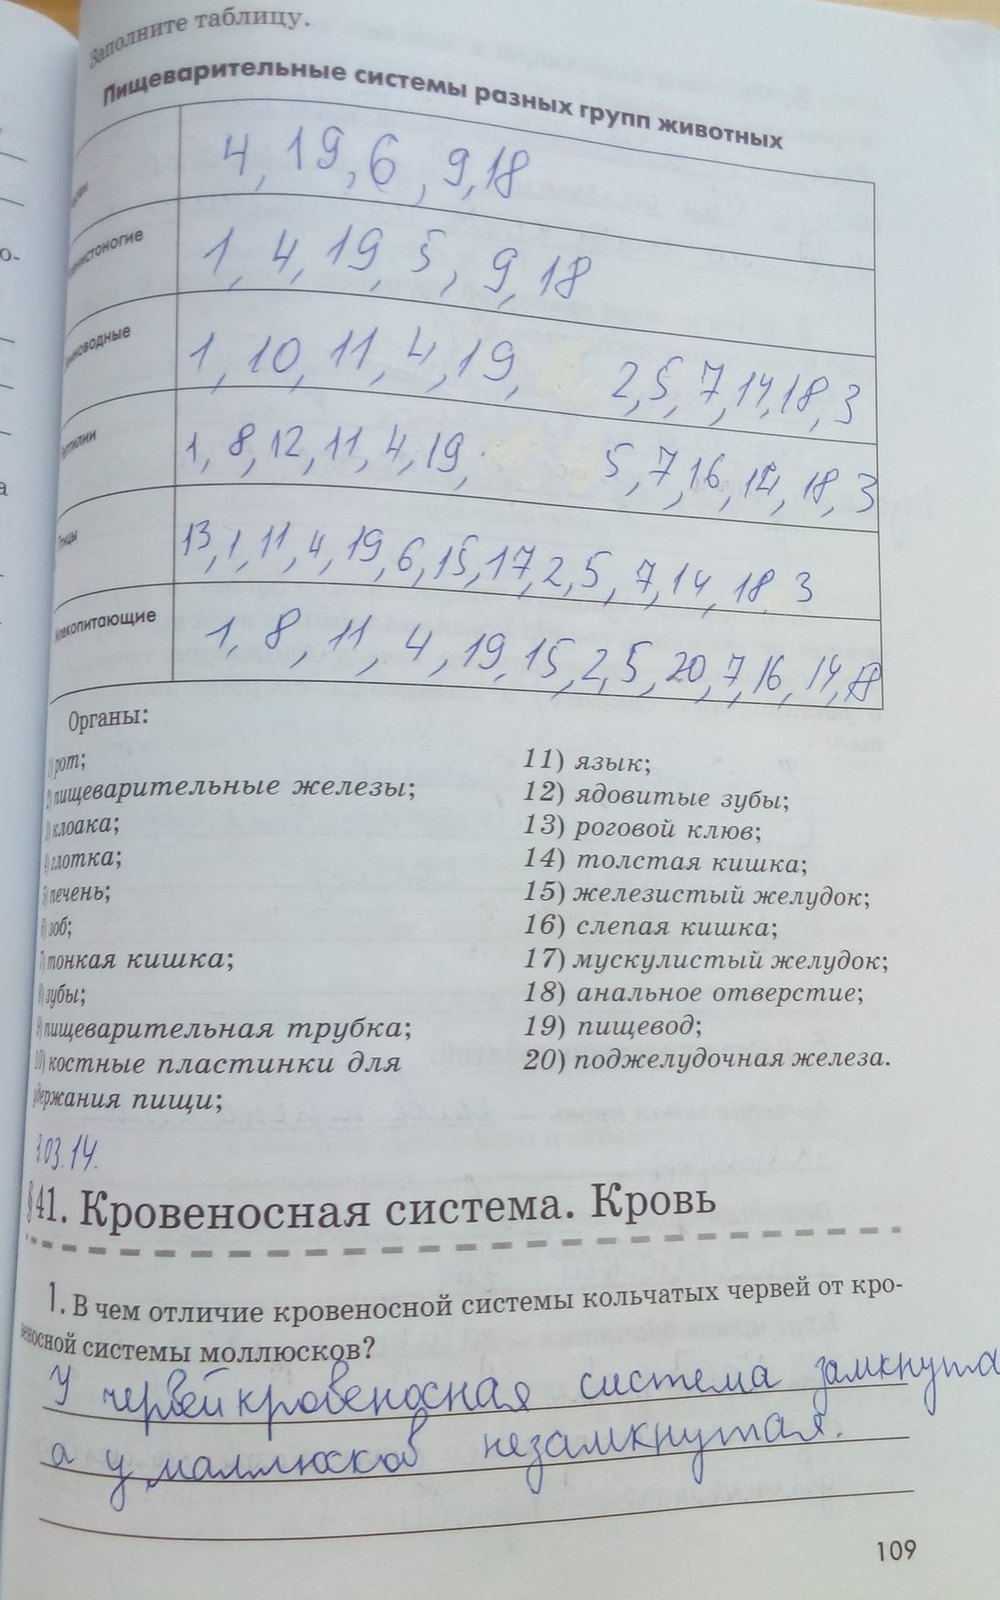 Заполните таблицу.
Пищеварительные системы разных групп животных
4, 19, 6, 9, 18
1, 4, 19, 5, 9, 18
1, 10, 11, 4, 19, 2, 5, 7, 14, 18, 3
1, 8, 12, 11, 4, 19, 5, 7, 16, 14, 18, 3
13, 1, 11, 4, 19, 6, 15, 17, 2, 5, 7, 14, 18, 3
млекопитающие 1, 8, 11, 4, 19, 15, 2, 5, 20, 7, 16, 14, 18
Органы:
1) рот;
2) пищеварительные железы;
3) клоака;
4) глотка;
5) печень;
6) зоб;
7) тонкая кишка;
8) зубы;
9) пищеварительная трубка;
10) костные пластинки для
держания пищи;
11) язык;
12) ядовитые зубы;
13) роговой клюв;
14) толстая кишка;
15) железистый желудок;
16) слепая кишка;
17) мускулистый желудок;
18) анальное отверстие;
19) пищевод;
20) поджелудочная железа.
03.14.
§ 41. Кровеносная система. Кровь
1. В чем отличие кровеносной системы кольчатых червей от кро-
веносной системы моллюсков?
У червей кровеносная система замкнута
а у маллюсков незамкнутая.
109